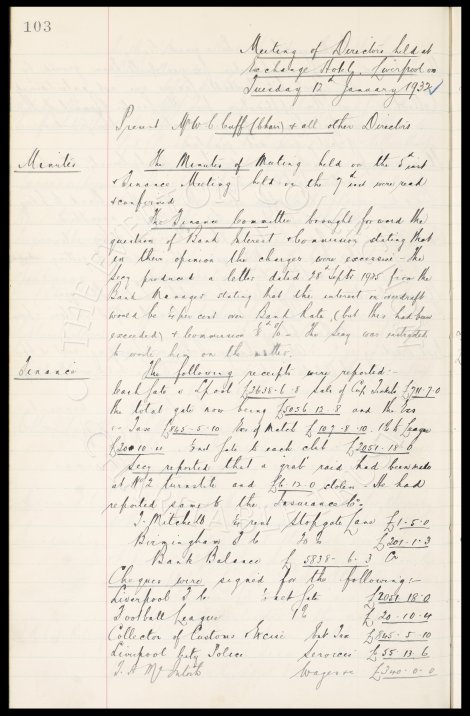 103
Meeting of Directors held at
Exchange Hotel, Liverpool on
Tuesday 12th January 1932
Present Mr W. C. Cuff (Chair) & all other Directors
Minutes
The Minutes of Meeting held on the 5th inst
& Finance Meeting held on the 7th inst were read
& confirmed
The Finance Committee brought forward the
question of Bank Interest & Commission stating that
in their opinion the charges were excessive - the
Secy produced a letter dated 28th Septr 1925 from the
Bank Manager stating that the interest on overdraft
would be ½ per cent over Bank Rate (but this had been
exceeded) & Commission - The Secy was instructed
to write him on the matter.
Finance
The following receipts were reported:-
Cash Gate v L'pool £3638-6-8 Sale of Cup Tickets £711-7-0
the total gate now being £5036 13.8 and the Ent
Tax £845-5-10 Exs of Match £107-8-10. 1% League
£20 10 11. Exact Gate to each club £2051-18-0
Secy reported that a grab raid had been made
at No 2 turnstile and £6 13-0 stolen - He had
reported same to the Insurance Co.
T. Mitchell rent Stopgate Lane £1-5-0
Birmingham F C £201-1-3
Bank Balance £5838-6-3 Cr
Cheques were signed for the following:-
Liverpool F.C. Exact Gate £2051 18-0
Football League 1% £20-10-4
Collector of Customs & Excise Ent Tax £845-5-10
Liverpool City Police Services £55-13-6
T. H. McIntosh Wages £340-0-0